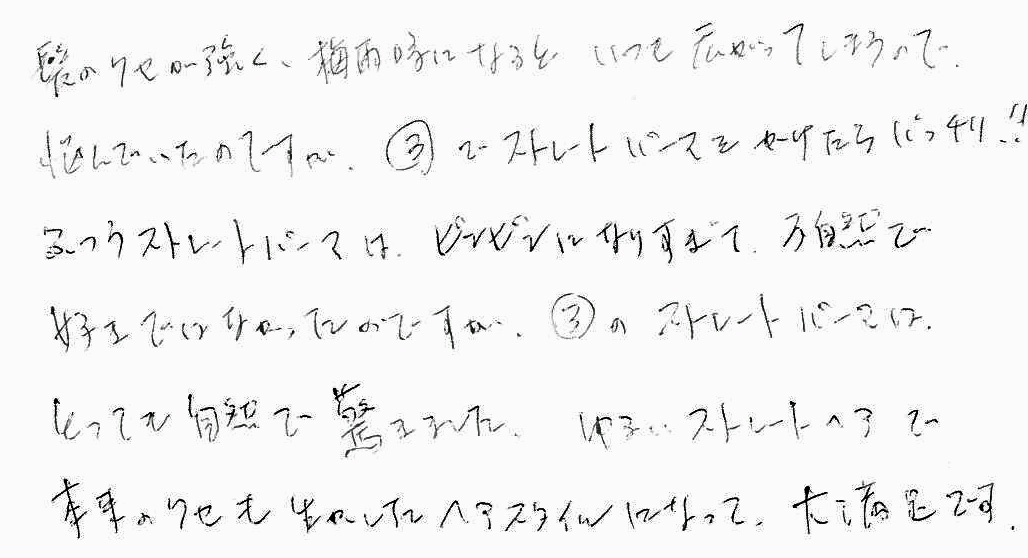 髪のクセが強く、梅雨時になると いつも 広がってしまうので、
悩んでいたのですが、③でストレートパーマをかけたらバッチリ!!
ふつうストレートパーマは、ピンピンになりすぎて、不自然で
好きではなかったのですが、③のストレートパーマは、
とっても自然で驚きました。 ゆるいストレートヘアで
本来のクセも生かしたヘアスタイルになって、大満足です。